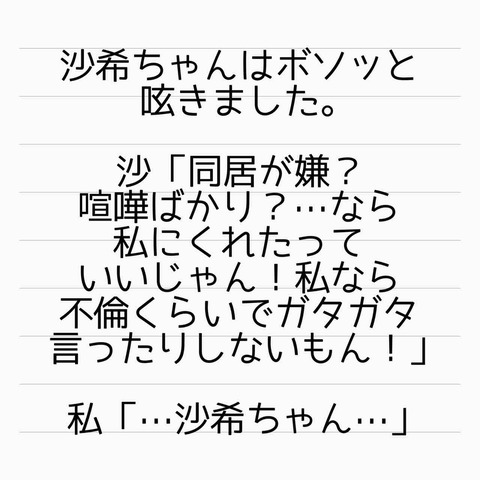 沙希ちゃんはボソッと
呟きました。
沙「同居が嫌？
喧嘩ばかり？…なら
私にくれたって
いいじゃん！私なら
不倫くらいでガタガタ
言ったりしないもん！」
私「…沙希ちゃん…」